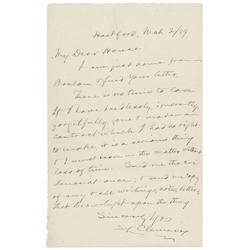 Hartford, Mch 2/89
My Dear House
I am just home from
Boston & find your letter.
There is no time to lose
If I have heedlessly, ignorantly,
forgetfully, gone & made a
contract which I had no right
to make, it is a serious thing
& I must move in the matter without
loss of time. Send me the evi-
dence at once; & send me copy
of any & all writings, notes, letters,
that throw light upon the thing.
Sincerely Yrs
S L Clemens